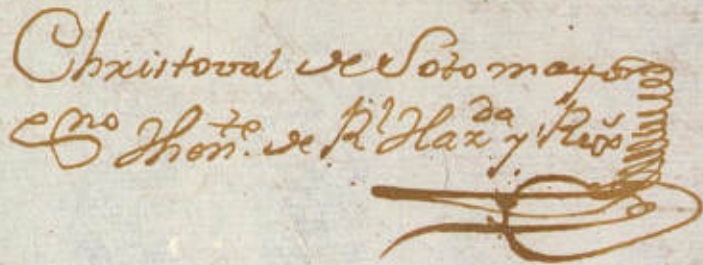 Christoval de Sotomayor
essno Thente. de Rl Hazda y Regs